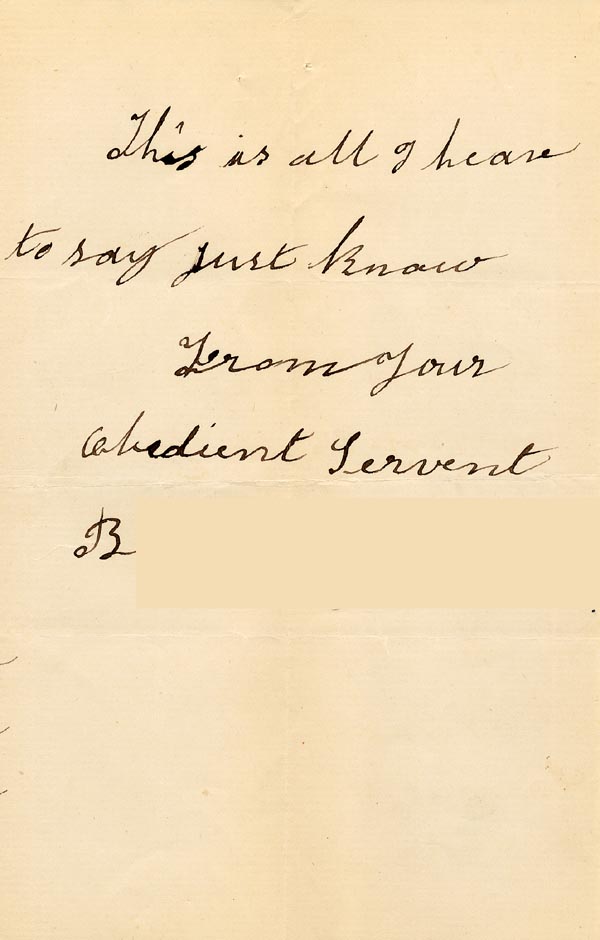 This is all I heave
to say just know
From Your
Obedient Servent
B